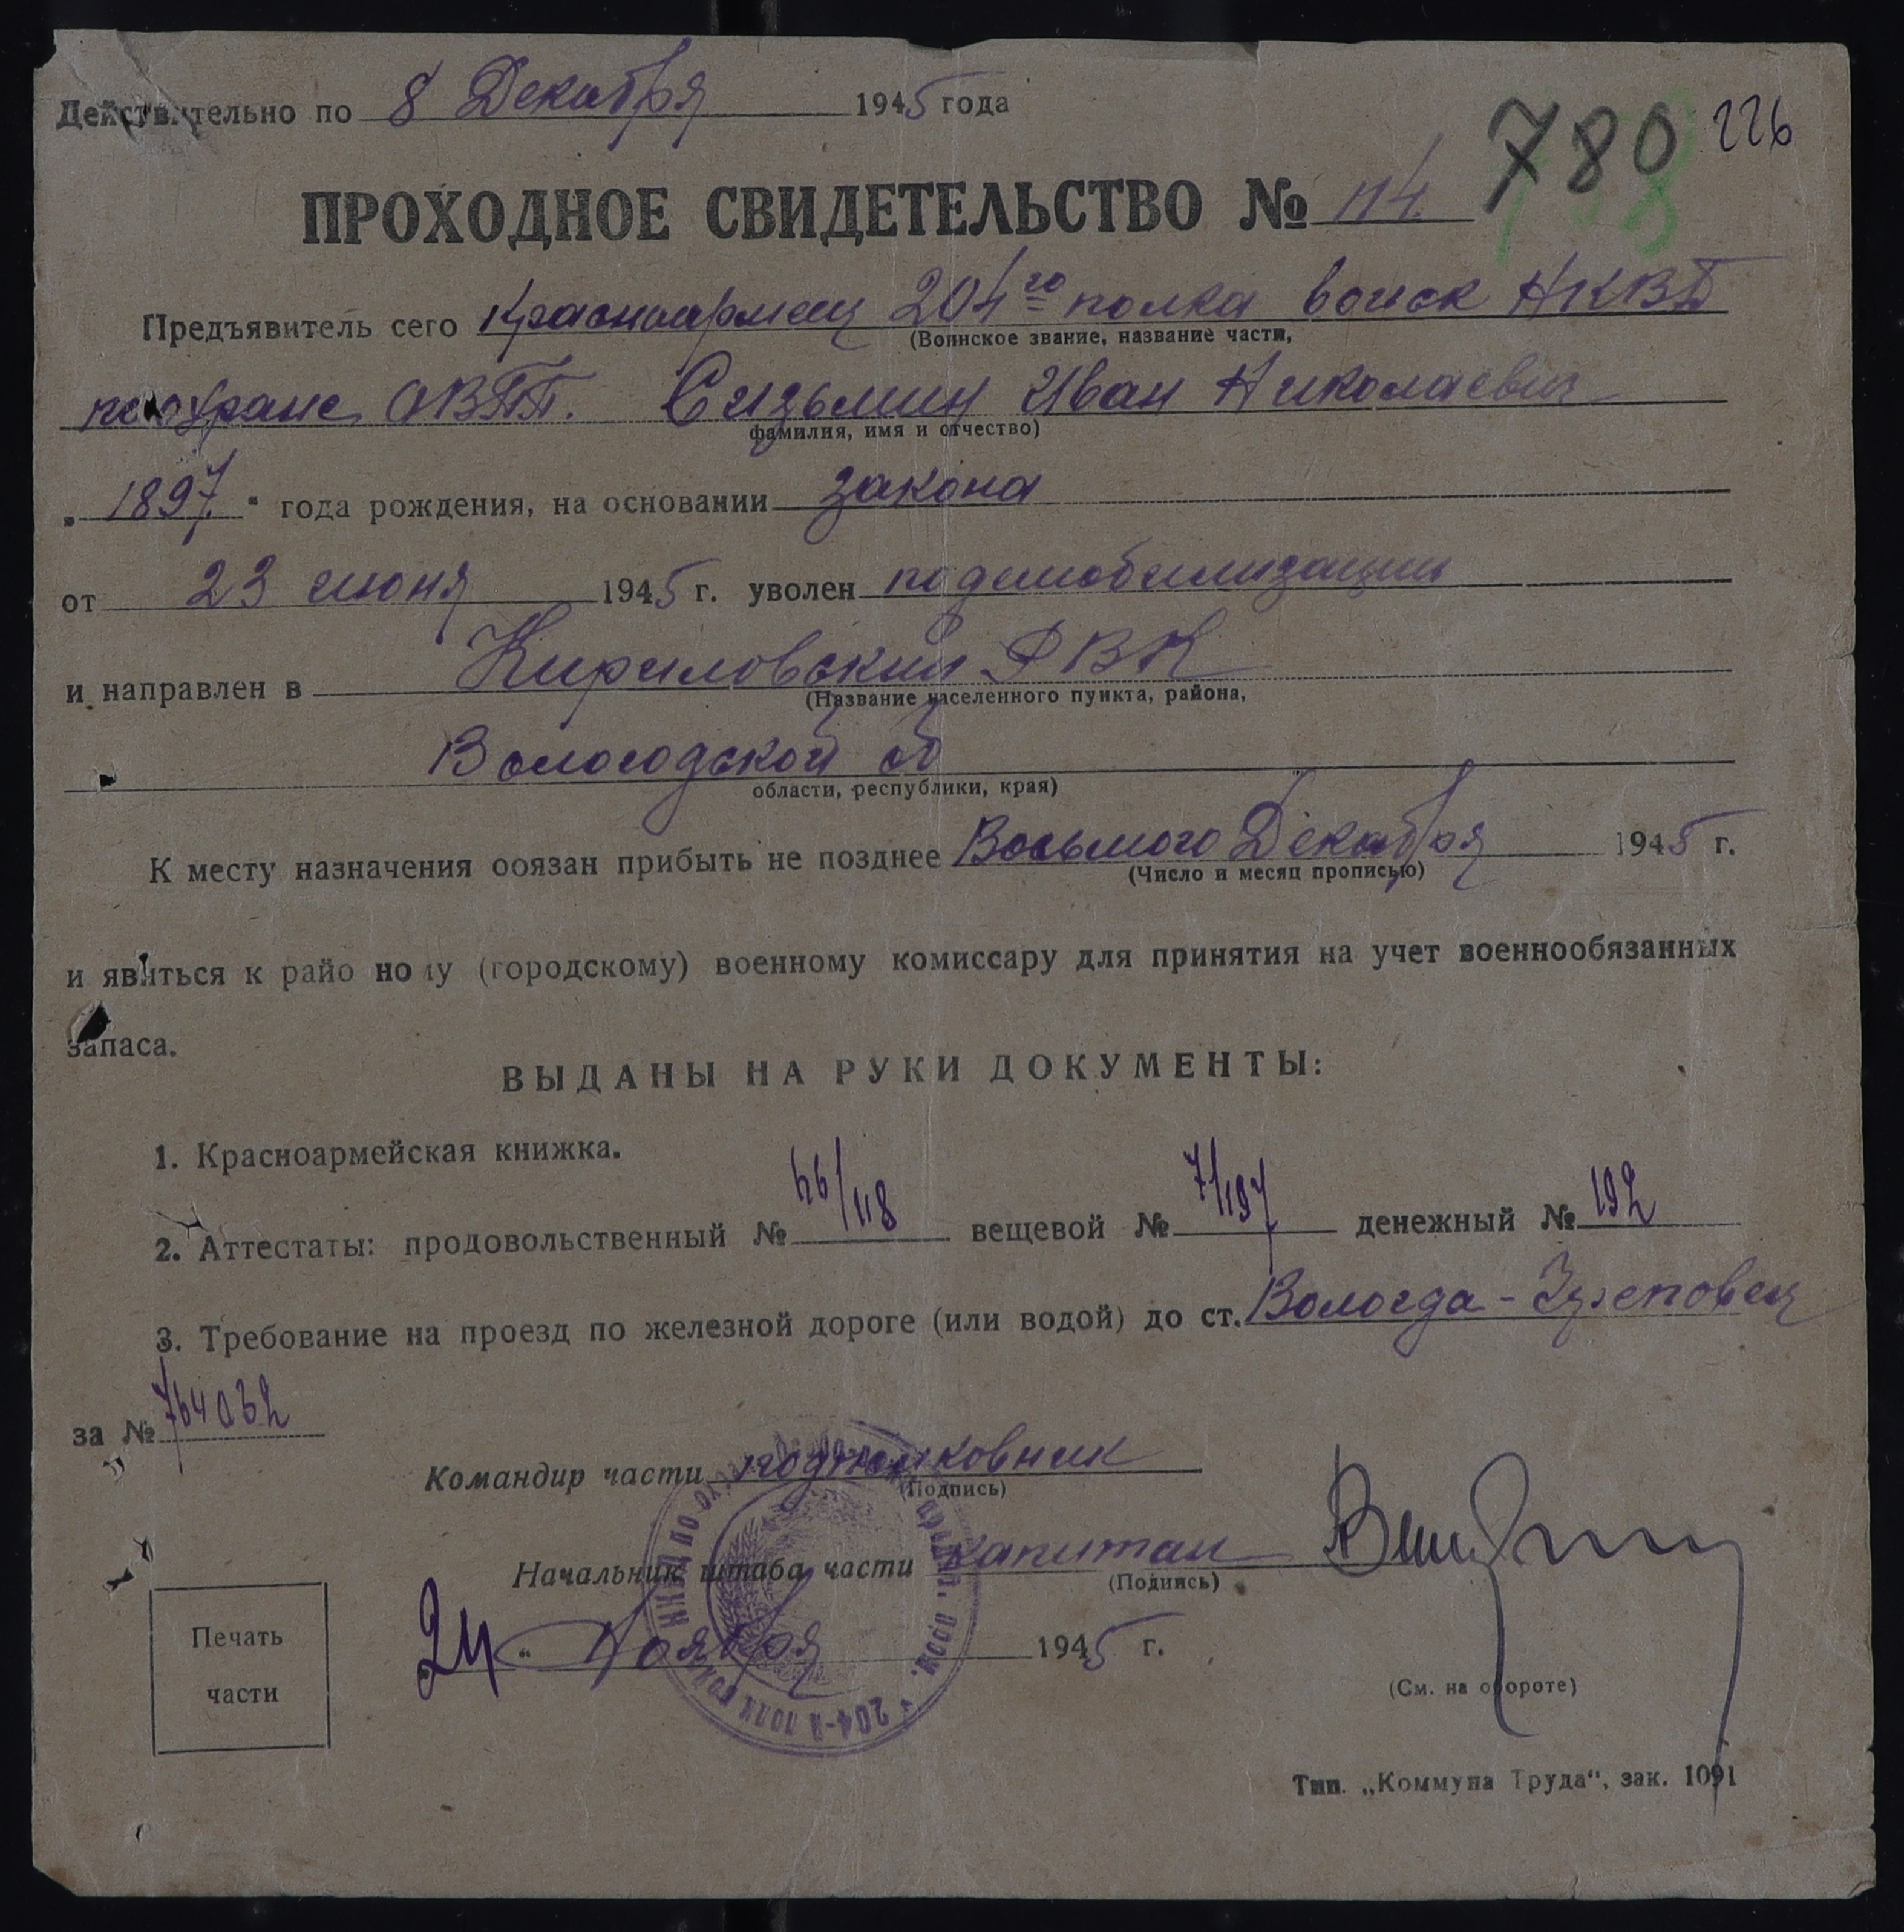 Действительно по 8 Декабря 1945 года
780 226
ПРОХОДНОЕ СВИДЕТЕЛЬСТВО № 114.
Предъявитель сего Красноармеец 204го полка войск НКВД
(Воинское звание, название части,
по охране ОВПП. Сизьмин Иван Николаевич
фамилия, имя и отчество)
„1897.“ года рождения, на основании закона
от 23 июня 1945 г. уволен по демобилизации
и направлен в Кириловский РВК
(Название населенного пункта, района,
Вологодской об
области, республики, края)
К месту назначения обязан прибыть не позднее Восьмого Декабря 1945 г.
(Число и месяц прописью)
и явиться к районному (городскому) военному комиссару для принятия на учет военнообязанных
запаса.
ВЫДАНЫ НА РУКИ ДОКУМЕНТЫ:
1. Красноармейская книжка.
2. Аттестаты: продовольственный № 66/118 вещевой № 7/197 денежный № 192
3. Требование на проезд по железной дороге (или водой) до ст. Вологда - Череповец
за № 764032
Командир части подполковник
(Подпись)
Начальник штаба части капитан
(Подпись)
„24“ Ноября 1945 г.
Печать
части
(См. на обороте)
Тип. „Коммуна Труда“, зак. 1091
204-й полк войск НКВД по охране